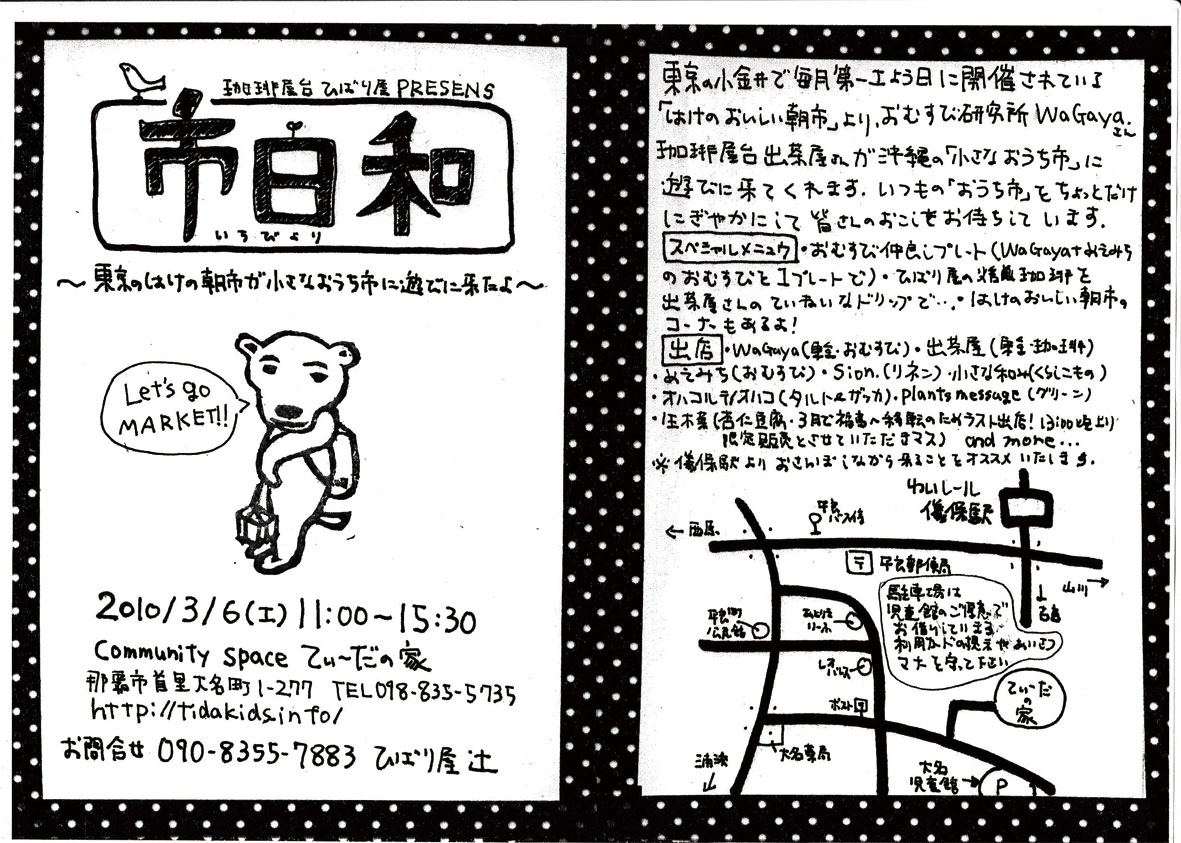 珈琲屋台 ひばり屋 PRESENS
市日和
いちびより
〜東京のはけの朝市が小さなおうち市に遊びに来たよ〜
Let's go
MARKET!!
2010/3/6(土) 11:00〜15:30
Community space てぃ〜だの家
那覇市首里大名町1-277 TEL098-835-5735
http://tidakids.info/
お問合せ 090-8355-7883 ひばり屋 辻
東京の小金井で毎月第一土よう日に開催されている
「はけのおいしい朝市」より、おむすび研究所 WaGaya.さん
珈琲屋台 出茶屋さんが沖縄の「小さなおうち市」に
遊びに来てくれます. いつもの「おうち市」をちょっとだけ
にぎやかにして皆さんのおこしをお待ちしています.
スペシャルメニュウ ・おむすび仲良しプレート(WaGaya+みえみち
のおむすびを1プレートで)・ひばり屋の 珈琲を
出茶屋さんのていねいなドリップで…・はけのおいしい朝市の
コーナーもあるよ!
出店 ・WaGaya(東金・おむすび)・出茶屋(東金・珈琲)
・みえみち(おむすび)・Sion.(リネン)・小さな和み(くらしこもの)
・オハコルテ/オハコ(タルト&ガッカ)・Plants message(グリーン)
・圡木産(杏仁豆腐・3月で福岡へ移転のためラスト出店! 13:00頃より
限定販売とさせていただきマス) and more...
※儀保駅よりおさんぽしながら来ることをオススメいたします.
ゆいレール
儀保駅
←西原
平良バス停
〒 平良郵便局
山川→
↓首里
駐車場は
児童館のご厚意で
お借りしています
利用カードの提示やあいさつ
マナーを守って下さい
平良町
公民館
レオパレス
ポスト〒
てぃーだの家
大名薬局
浦添
大名
児童館→
P